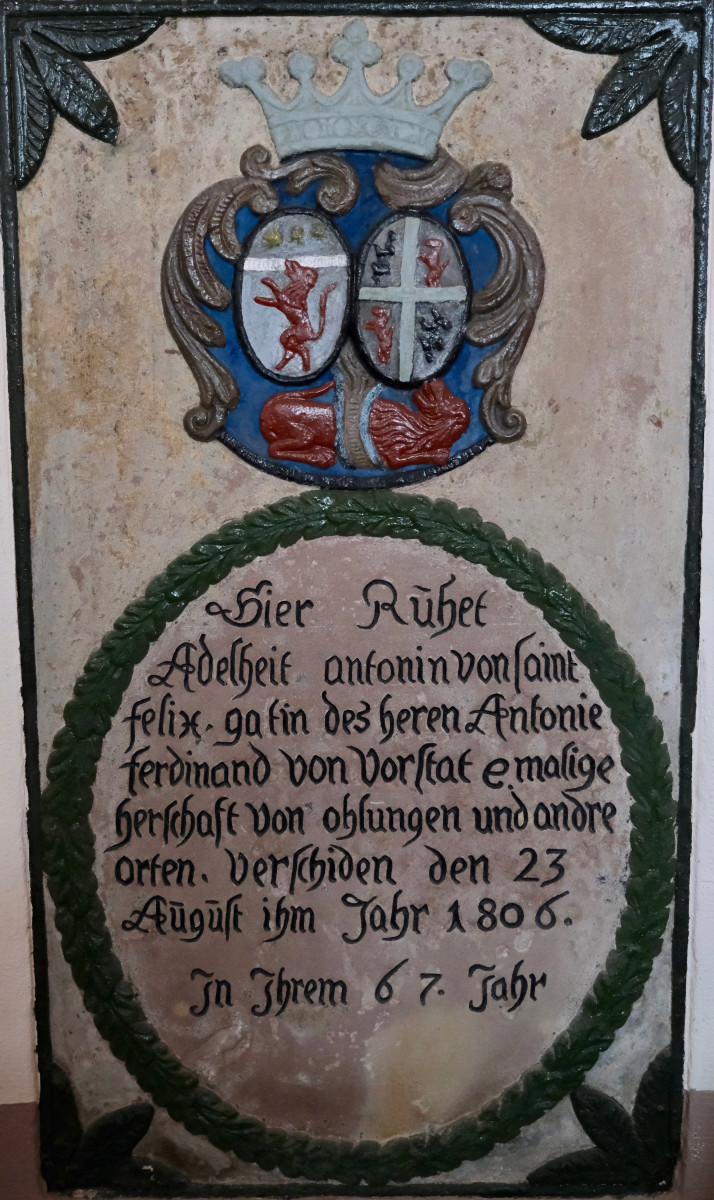 Hier Rūhet
Adelheit antonin von ſaint
felix. gatin des heren Antonie
ferdinand von Vorſtat emalige
herſchaft von ohlungen und andre
orten. verſchiden den 23
Aūgūſt ihm Jahr 1806.
Jn Jhrem 67. Jahr